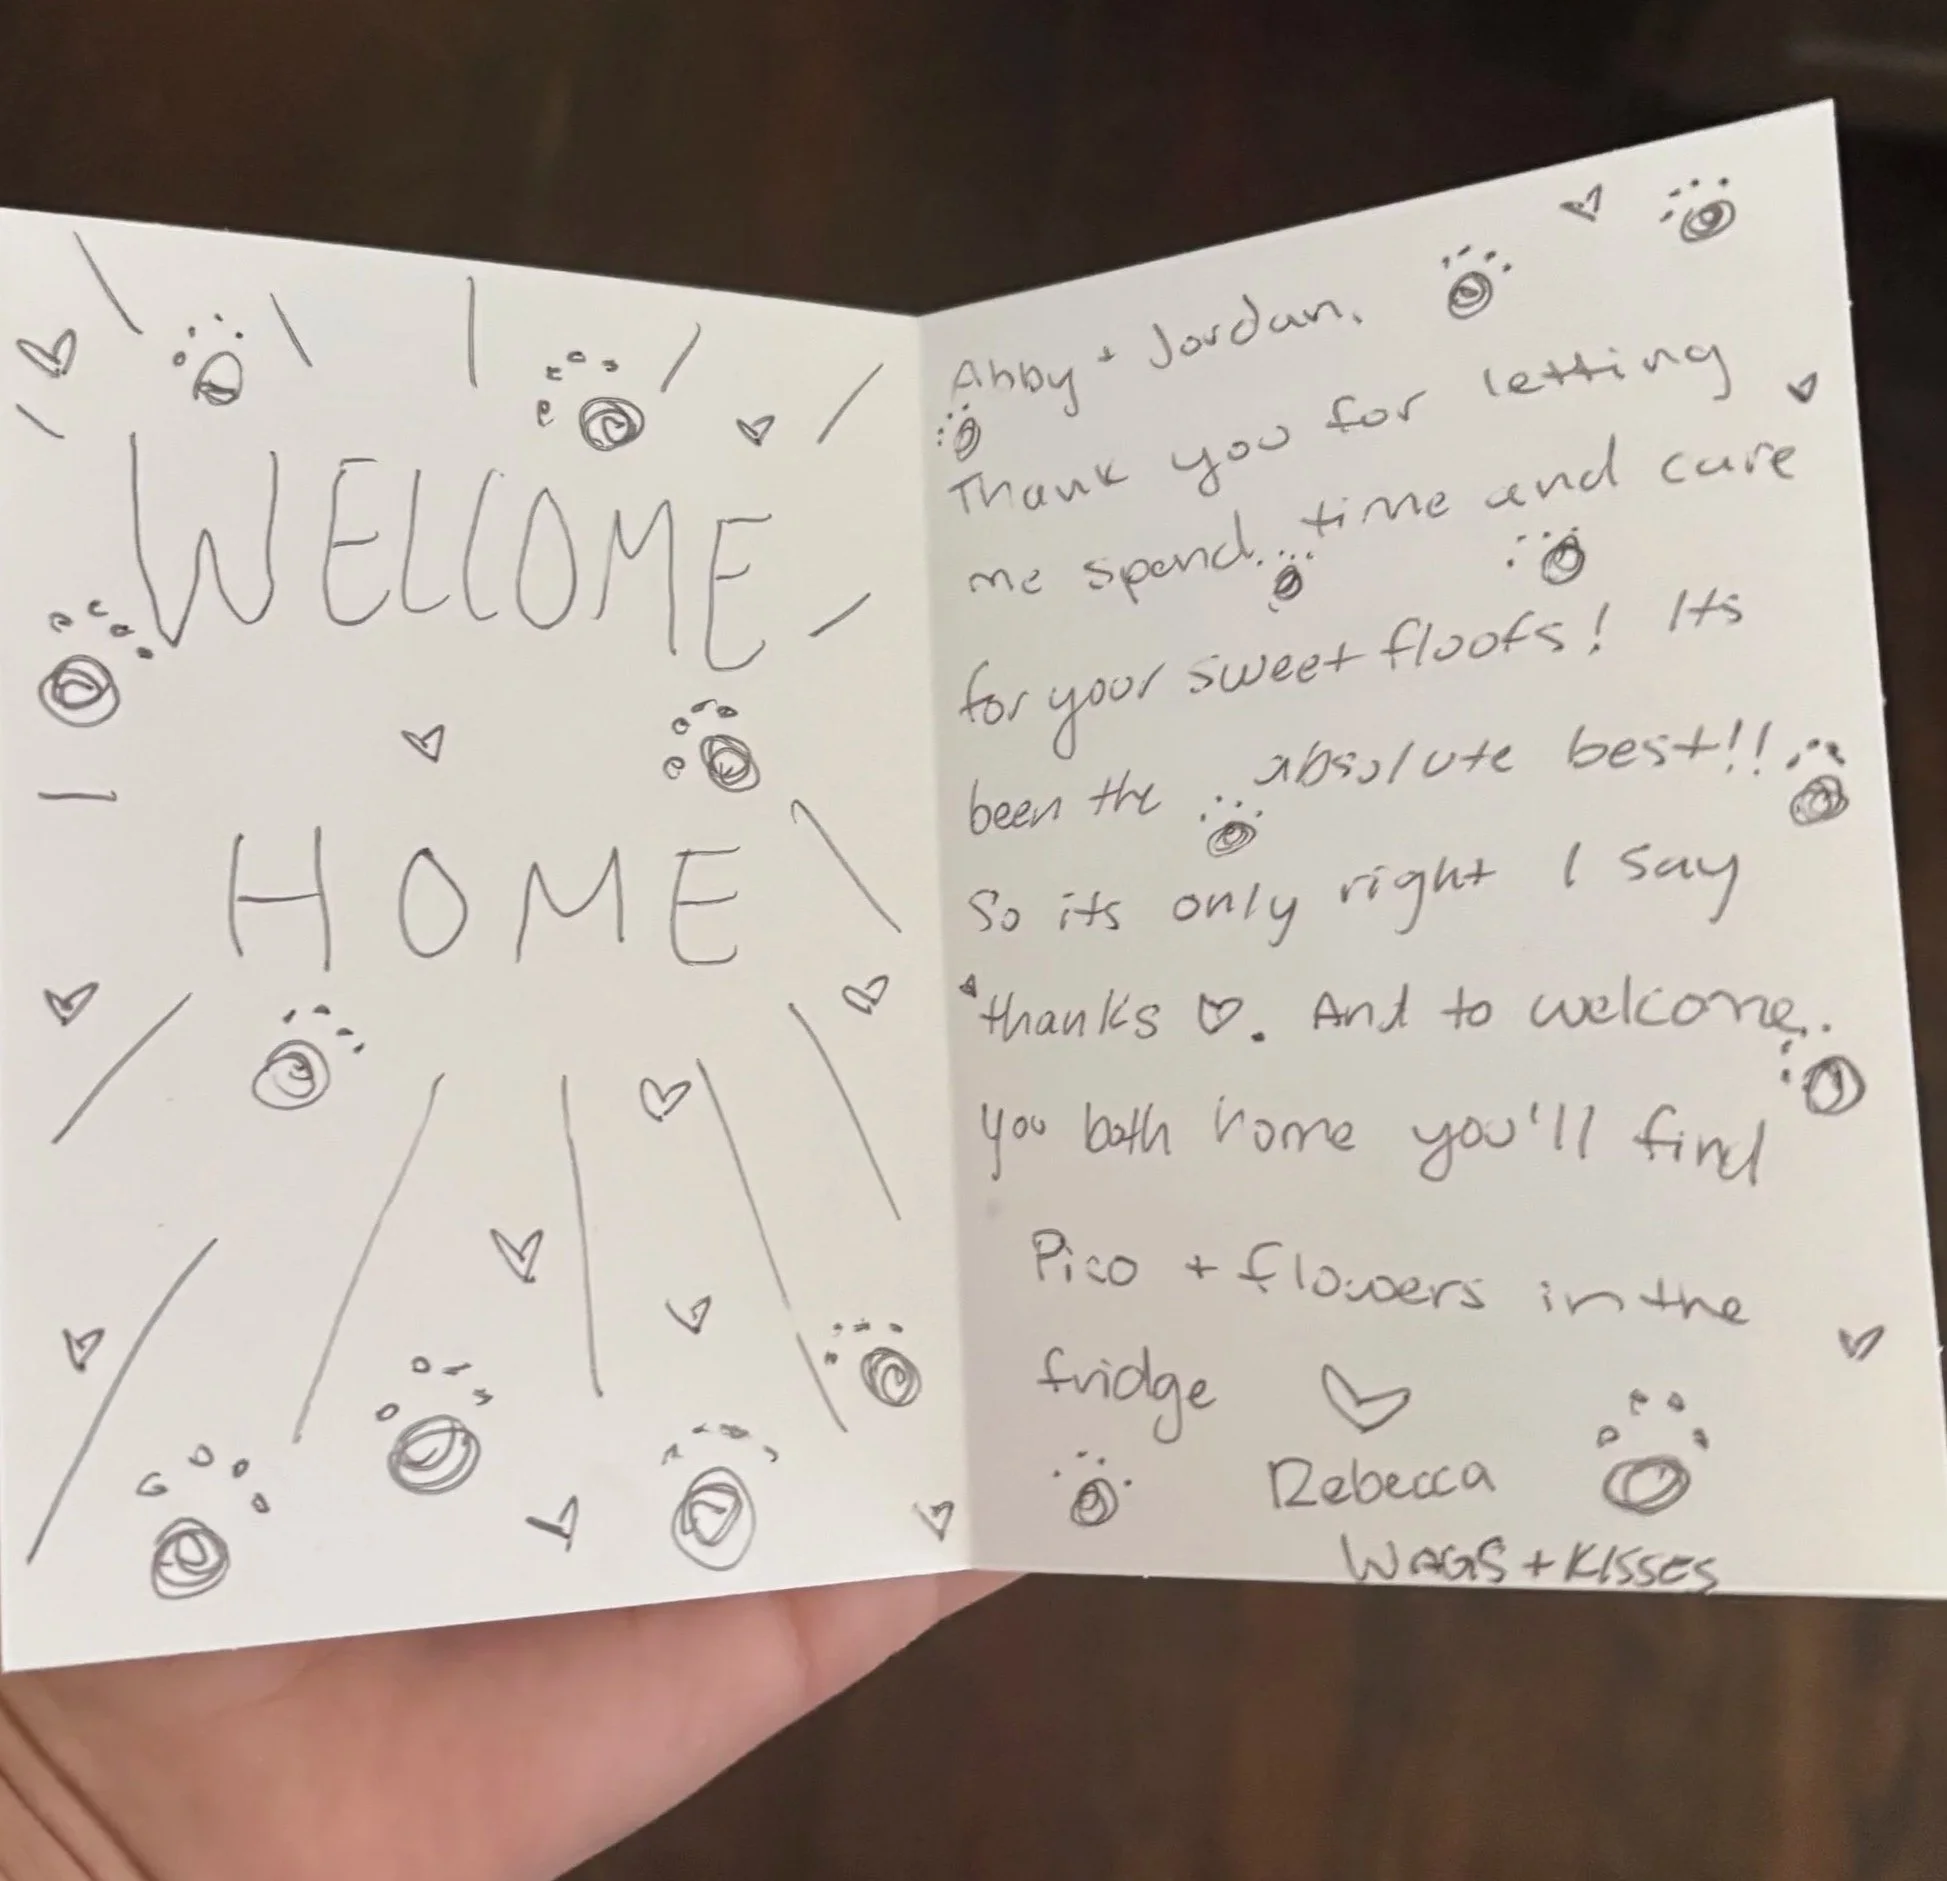 WELCOME
HOME
Abby + Jordan,
Thank you for letting
me spend time and care
for your sweet floofs! Its
been the absolute best!!
So its only right I say
thanks ♡. And to welcome
you both home you'll find
Pico + flowers in the
fridge ♡
Rebecca
WAGS + KISSES